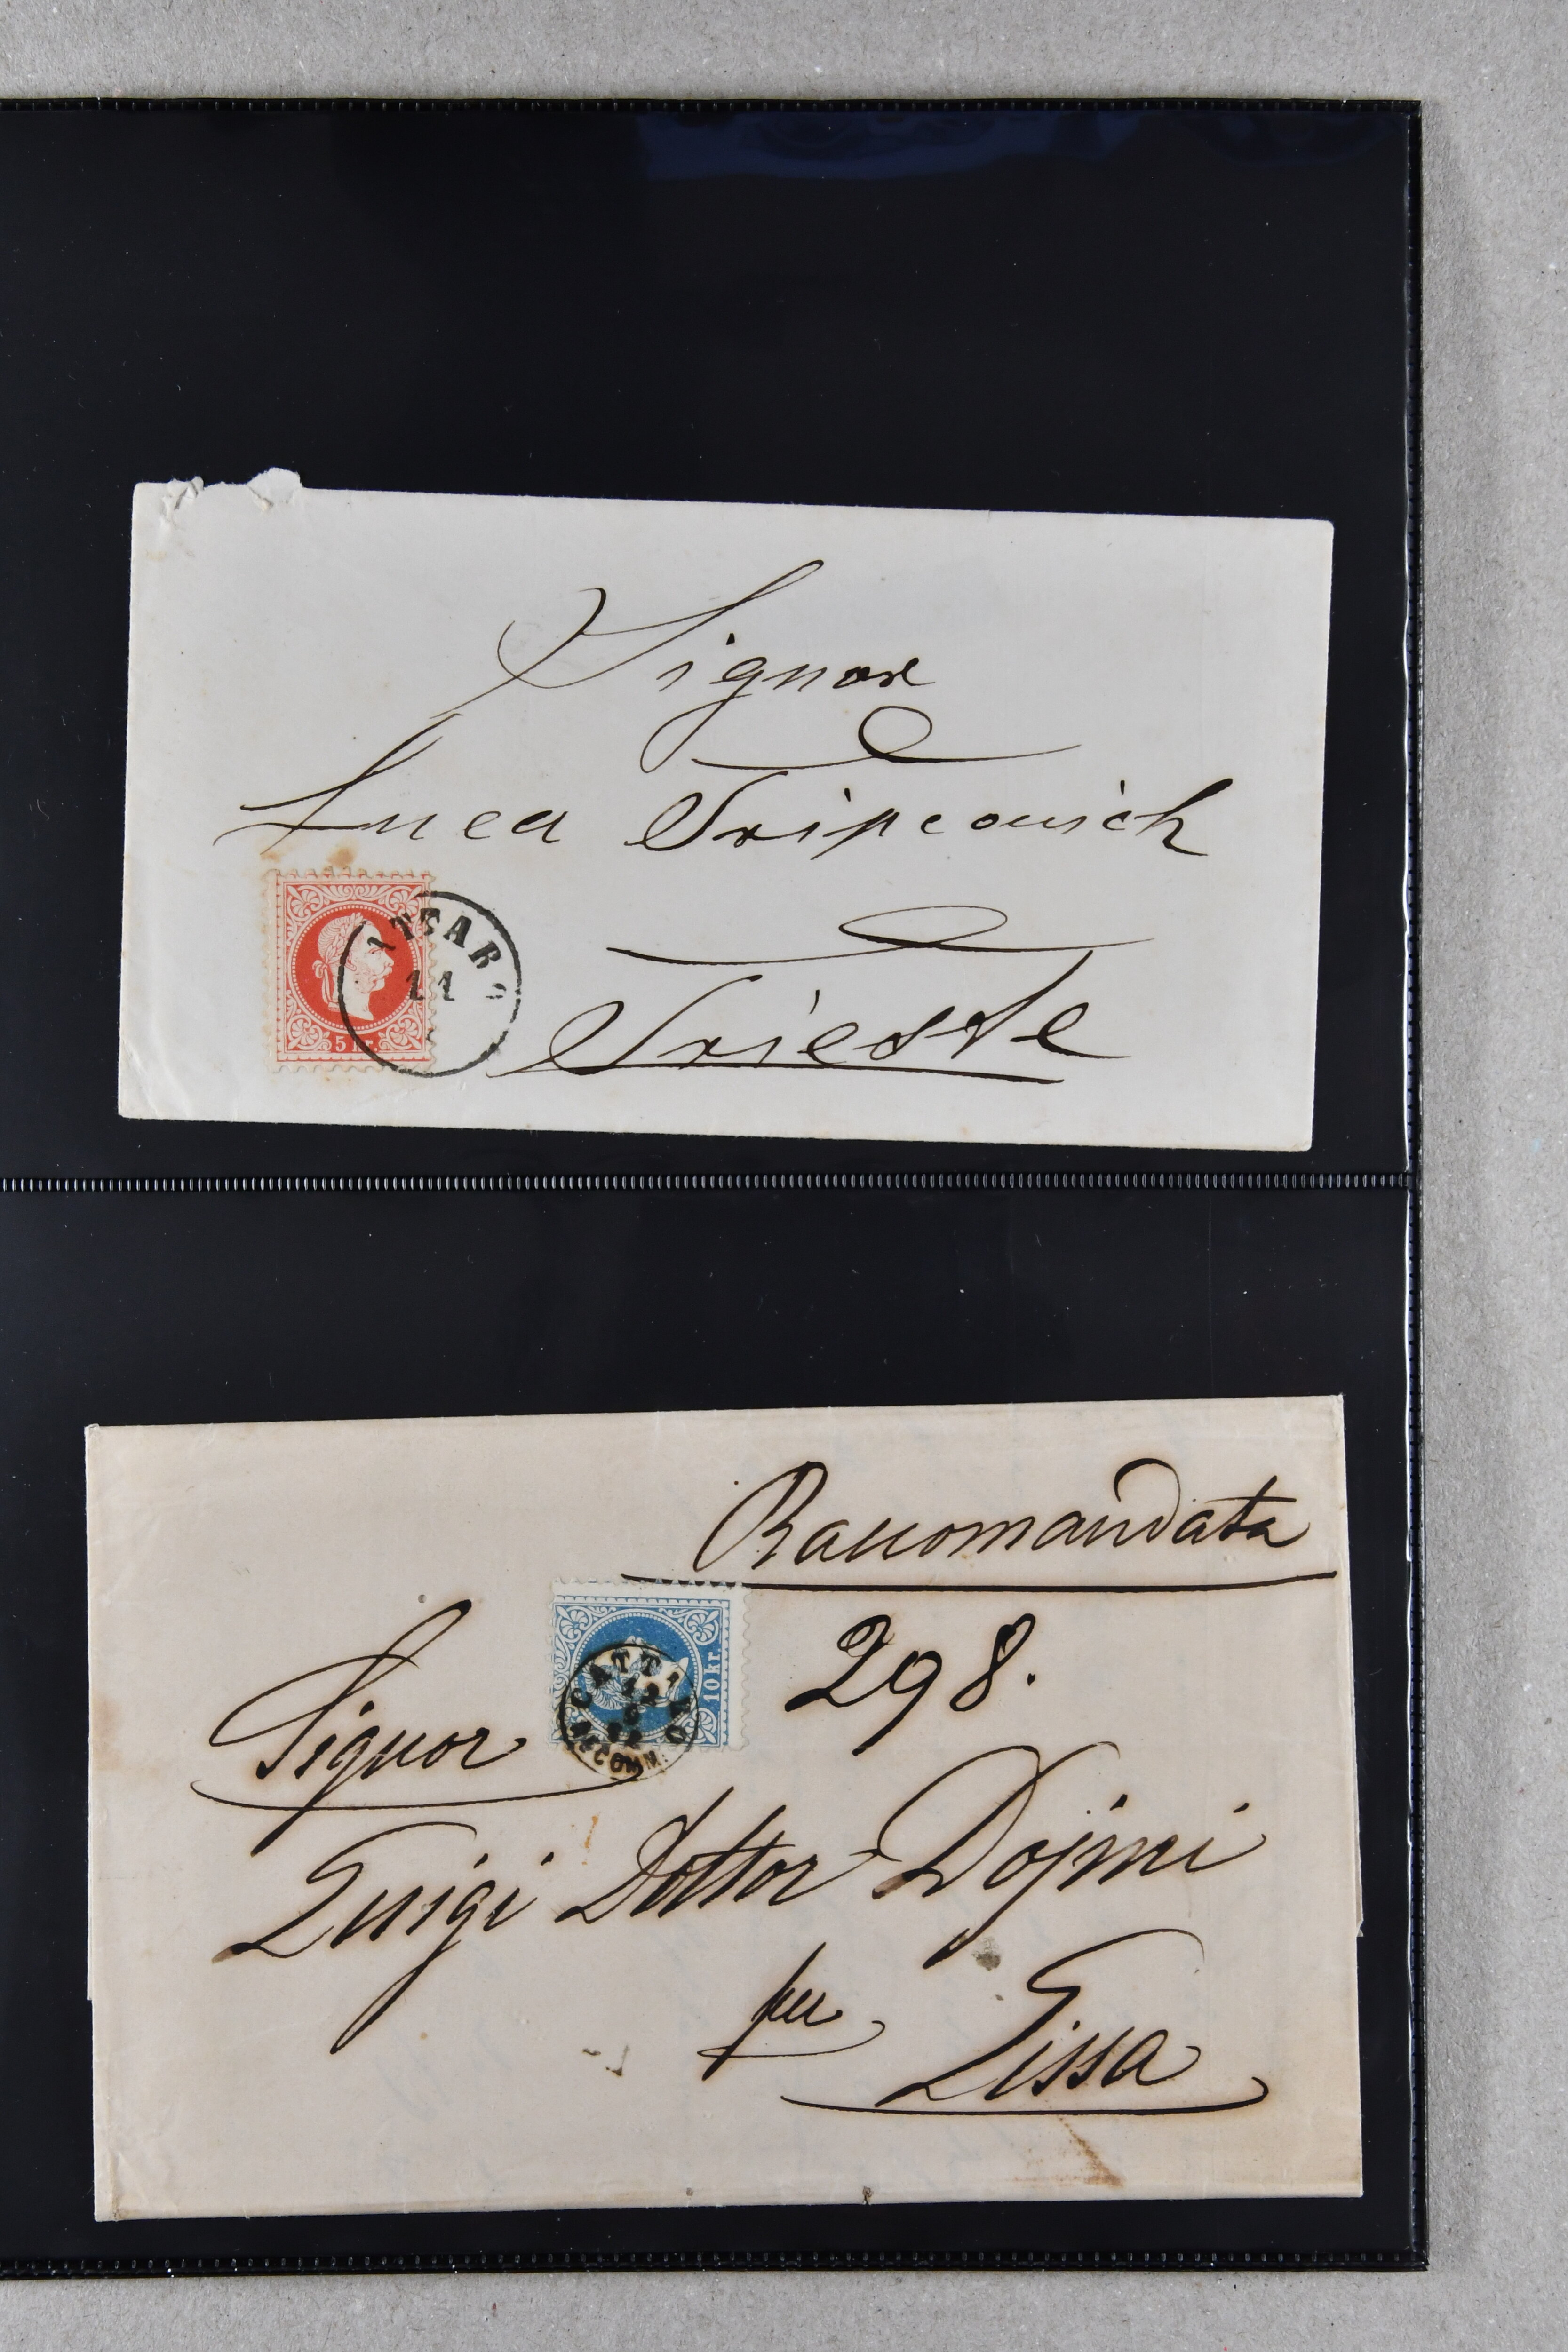 Signor
Luca Tripcovich
ATTARO
11
5 kr.
Trieste
Raccomandata
298.
10 kr.
CATTARO
12
RECOMM.
Signor
Luigi Dottor Dojmi
per
Lissa